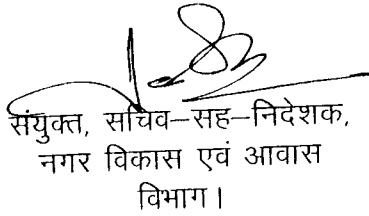 संयुक्त, सचिव–सह–निदेशक,
नगर विकास एवं आवास
विभाग।